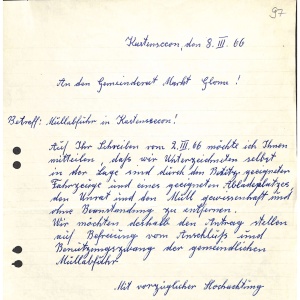 97
Kastenseeon, den 8. III. 66
An den Gemeinderat Markt Glonn!
Betreff: Müllabfuhr in Kastenseeon!
Auf Ihr Schreiben vom 2. III. 66 möchte ich Ihnen
mitteilen, daß wir Unterzeichneten selbst
in der Lage sind durch den Besitz geeigneter
Fahrzeuge und eines geeigneten Abladeplatzes
den Unrat und den Müll gewissenhaft und
ohne Beanstandung zu entfernen.
Wir möchten deshalb den Antrag stellen
auf Befreiung vom Anschluß und
Benützungszwang der gemeindlichen
Müllabfuhr
Mit vorzüglicher Hochachtung